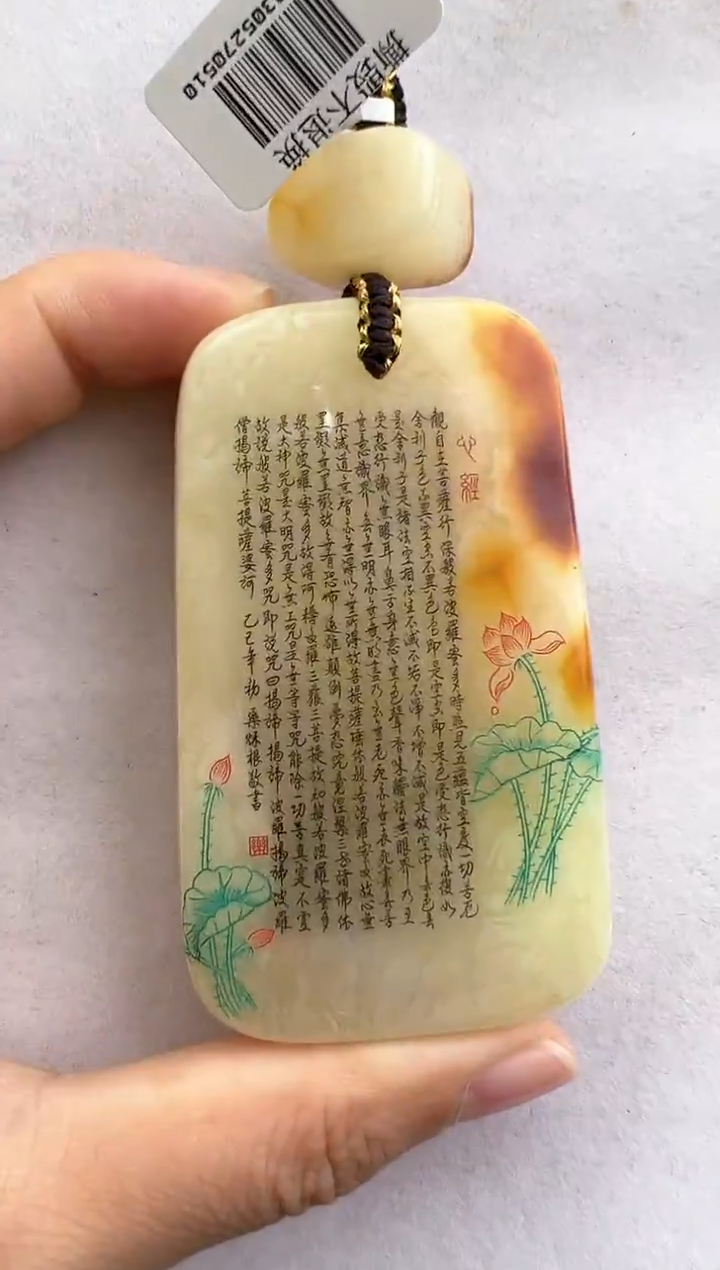 305270510
撕毁不退换
心經
觀自在菩薩行深般若波羅蜜多時照見五蘊皆空度一切苦厄
舍利子色不異空空不異色色即是空空即是色受想行識亦復如
是舍利子是諸法空相不生不滅不垢不淨不增不減是故空中無色無
受想行識無眼耳鼻舌身意無色聲香味觸法無眼界乃至
無意識界無無明亦無無明盡乃至無老死亦無老死盡無苦
集滅道無智亦無得以無所得故菩提薩埵依般若波羅蜜多故心無
罣礙無罣礙故無有恐怖遠離顛倒夢想究竟涅槃三世諸佛依
般若波羅蜜多故得阿耨多羅三藐三菩提故知般若波羅蜜多
是大神咒是大明咒是無上咒是無等等咒能除一切苦真實不虛
故說般若波羅蜜多咒即說咒曰揭諦揭諦波羅揭諦波羅
僧揭諦菩提薩婆訶 乙巳年 根敬書